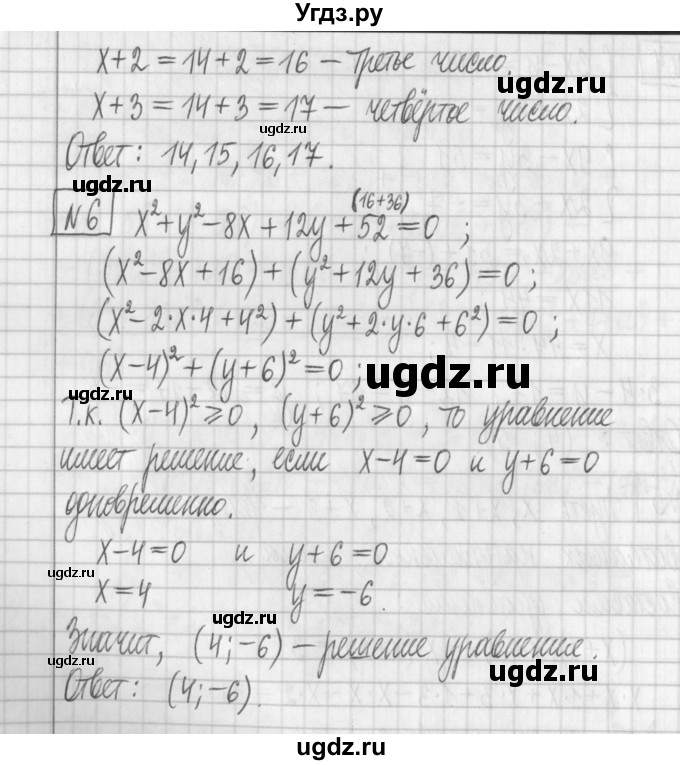 Угдз.ру
x+2=14+2=16 – третье число.
ugdz.ru
x+3=14+3=17 – четвёртое число.
ugdz.ru
Ответ: 14, 15, 16, 17.
ugdz.ru
(16+36)
№6 x²+y²-8x+12y+52=0 ;
ugdz.ru
(x²-8x+16)+(y²+12y+36)=0 ;
(x²-2·x·4+4²)+(y²+2·y·6+6²)=0 ;
(x-4)²+(y+6)²=0 ;
ugdz.ru
ugdz.ru
Т.к. (x-4)²⩾0, (y+6)²⩾0, то уравнение
имеет решение, если x-4=0 и y+6=0
одновременно.
x-4=0 и y+6=0
ugdz.ru
x=4 y=-6.
Значит, (4;-6) – решение уравнения.
ugdz.ru
ugdz.ru
Ответ: (4;-6).
ugdz.ru
ugdz.ru